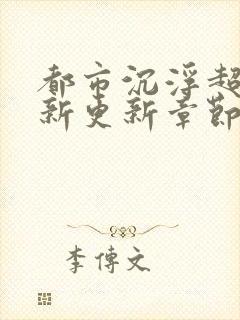 都市沉浮超
新更新章節
李傳文